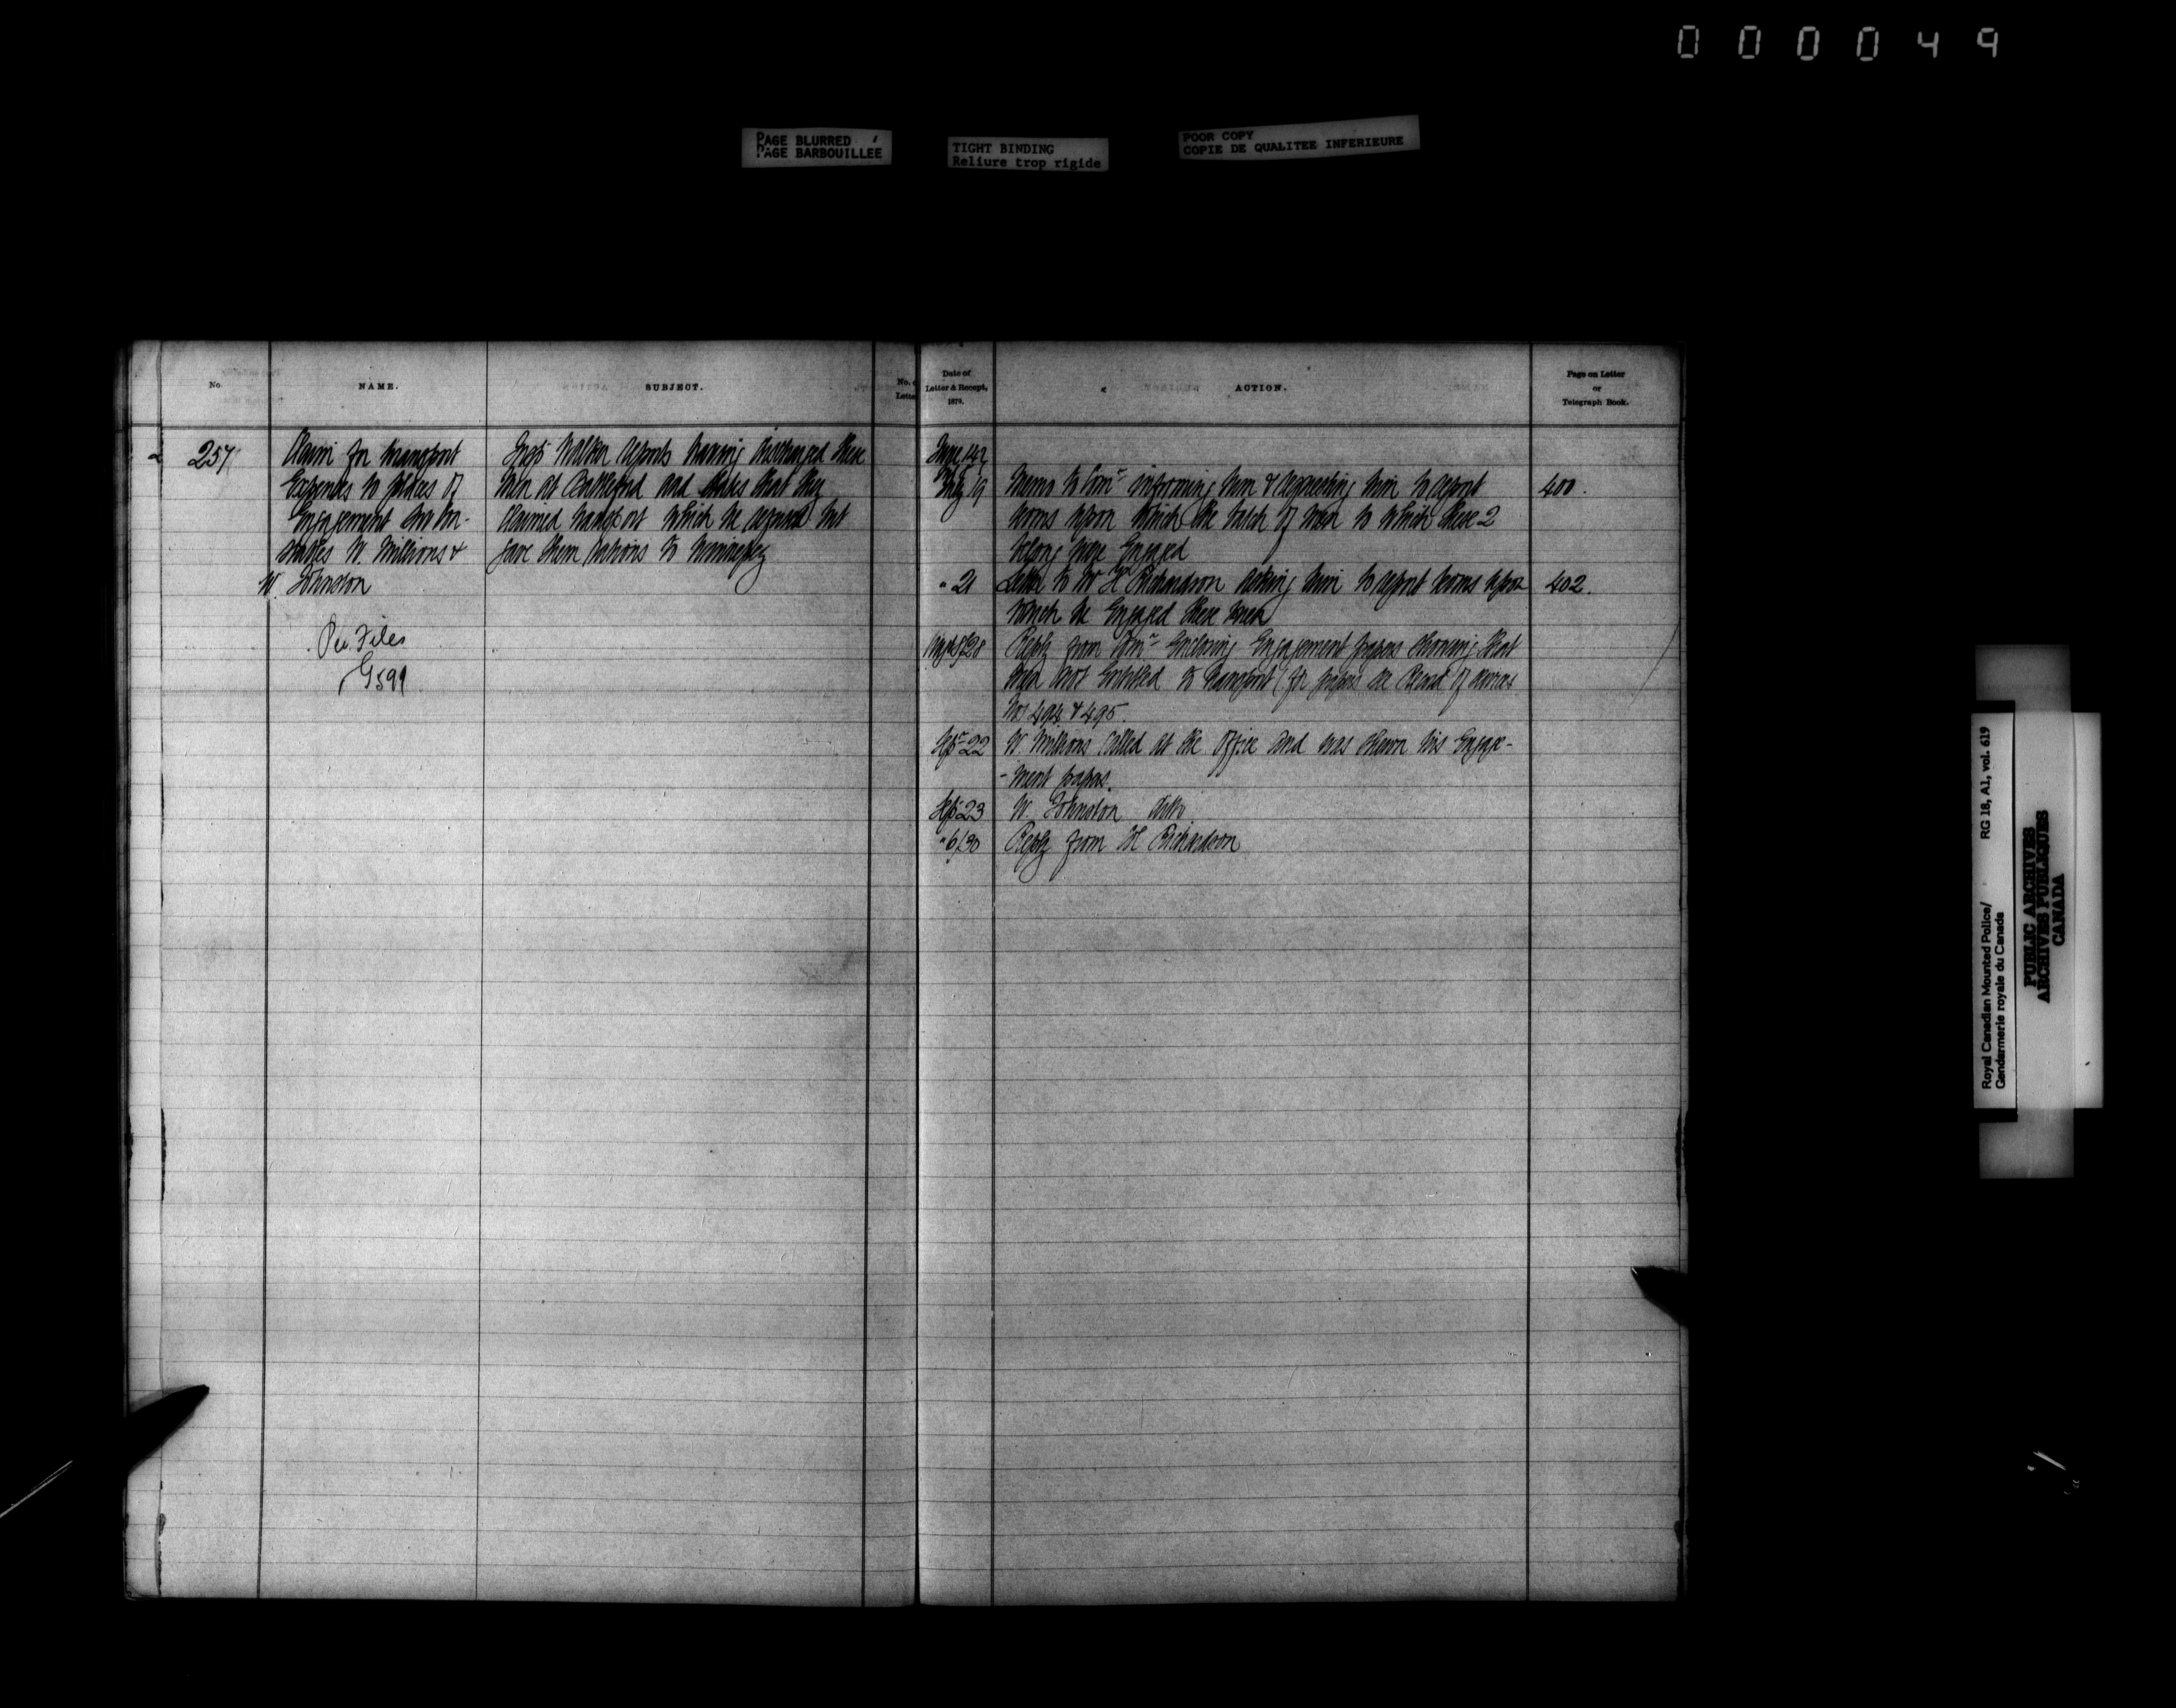 000049
PAGE BLURRED
PAGE BARBOUILLEE
TIGHT BINDING
Reliure trop rigide
POOR COPY
COPIE DE QUALITEE INFERIEURE
No.
NAME.
SUBJECT.
No. o
Letter
257
Claim for transport
Expenses to places of
Engagement Ex Con-
stables W. Millions &
W. Johnston
Per. Files
G599
Insp Walker reports having discharged these
men at Battleford and states that they
claimed transport which he refused but
gave them rations to Winnipeg
Date of
Letter & Receipt,
1879.
ACTION.
Page on Letter
or
Telegraph Book.
June 14
July 19 Memo to Comr informing him & requesting him to report 400.
terms upon which the batch of men to which these 2
belong were Engaged
" 21 Letter to Mr H Richardson asking him to report terms upon 402.
which he Engaged these men
Reply from Comr Enclosing Engagement papers showing that
men not Entitled to transport (for papers see Record of Services
Nos 494 & 495.
Sepr 22 W. Millions called at the Office and was shewn his Engage-
-ment papers.
Sep 23 W. Johnston ditto.
" 6/30 Reply from H Richardson
Royal Canadian Mounted Police/
Gendarmerie royale du Canada
RG 18, A1, vol. 619
PUBLIC ARCHIVES
ARCHIVES PUBLIQUES
CANADA